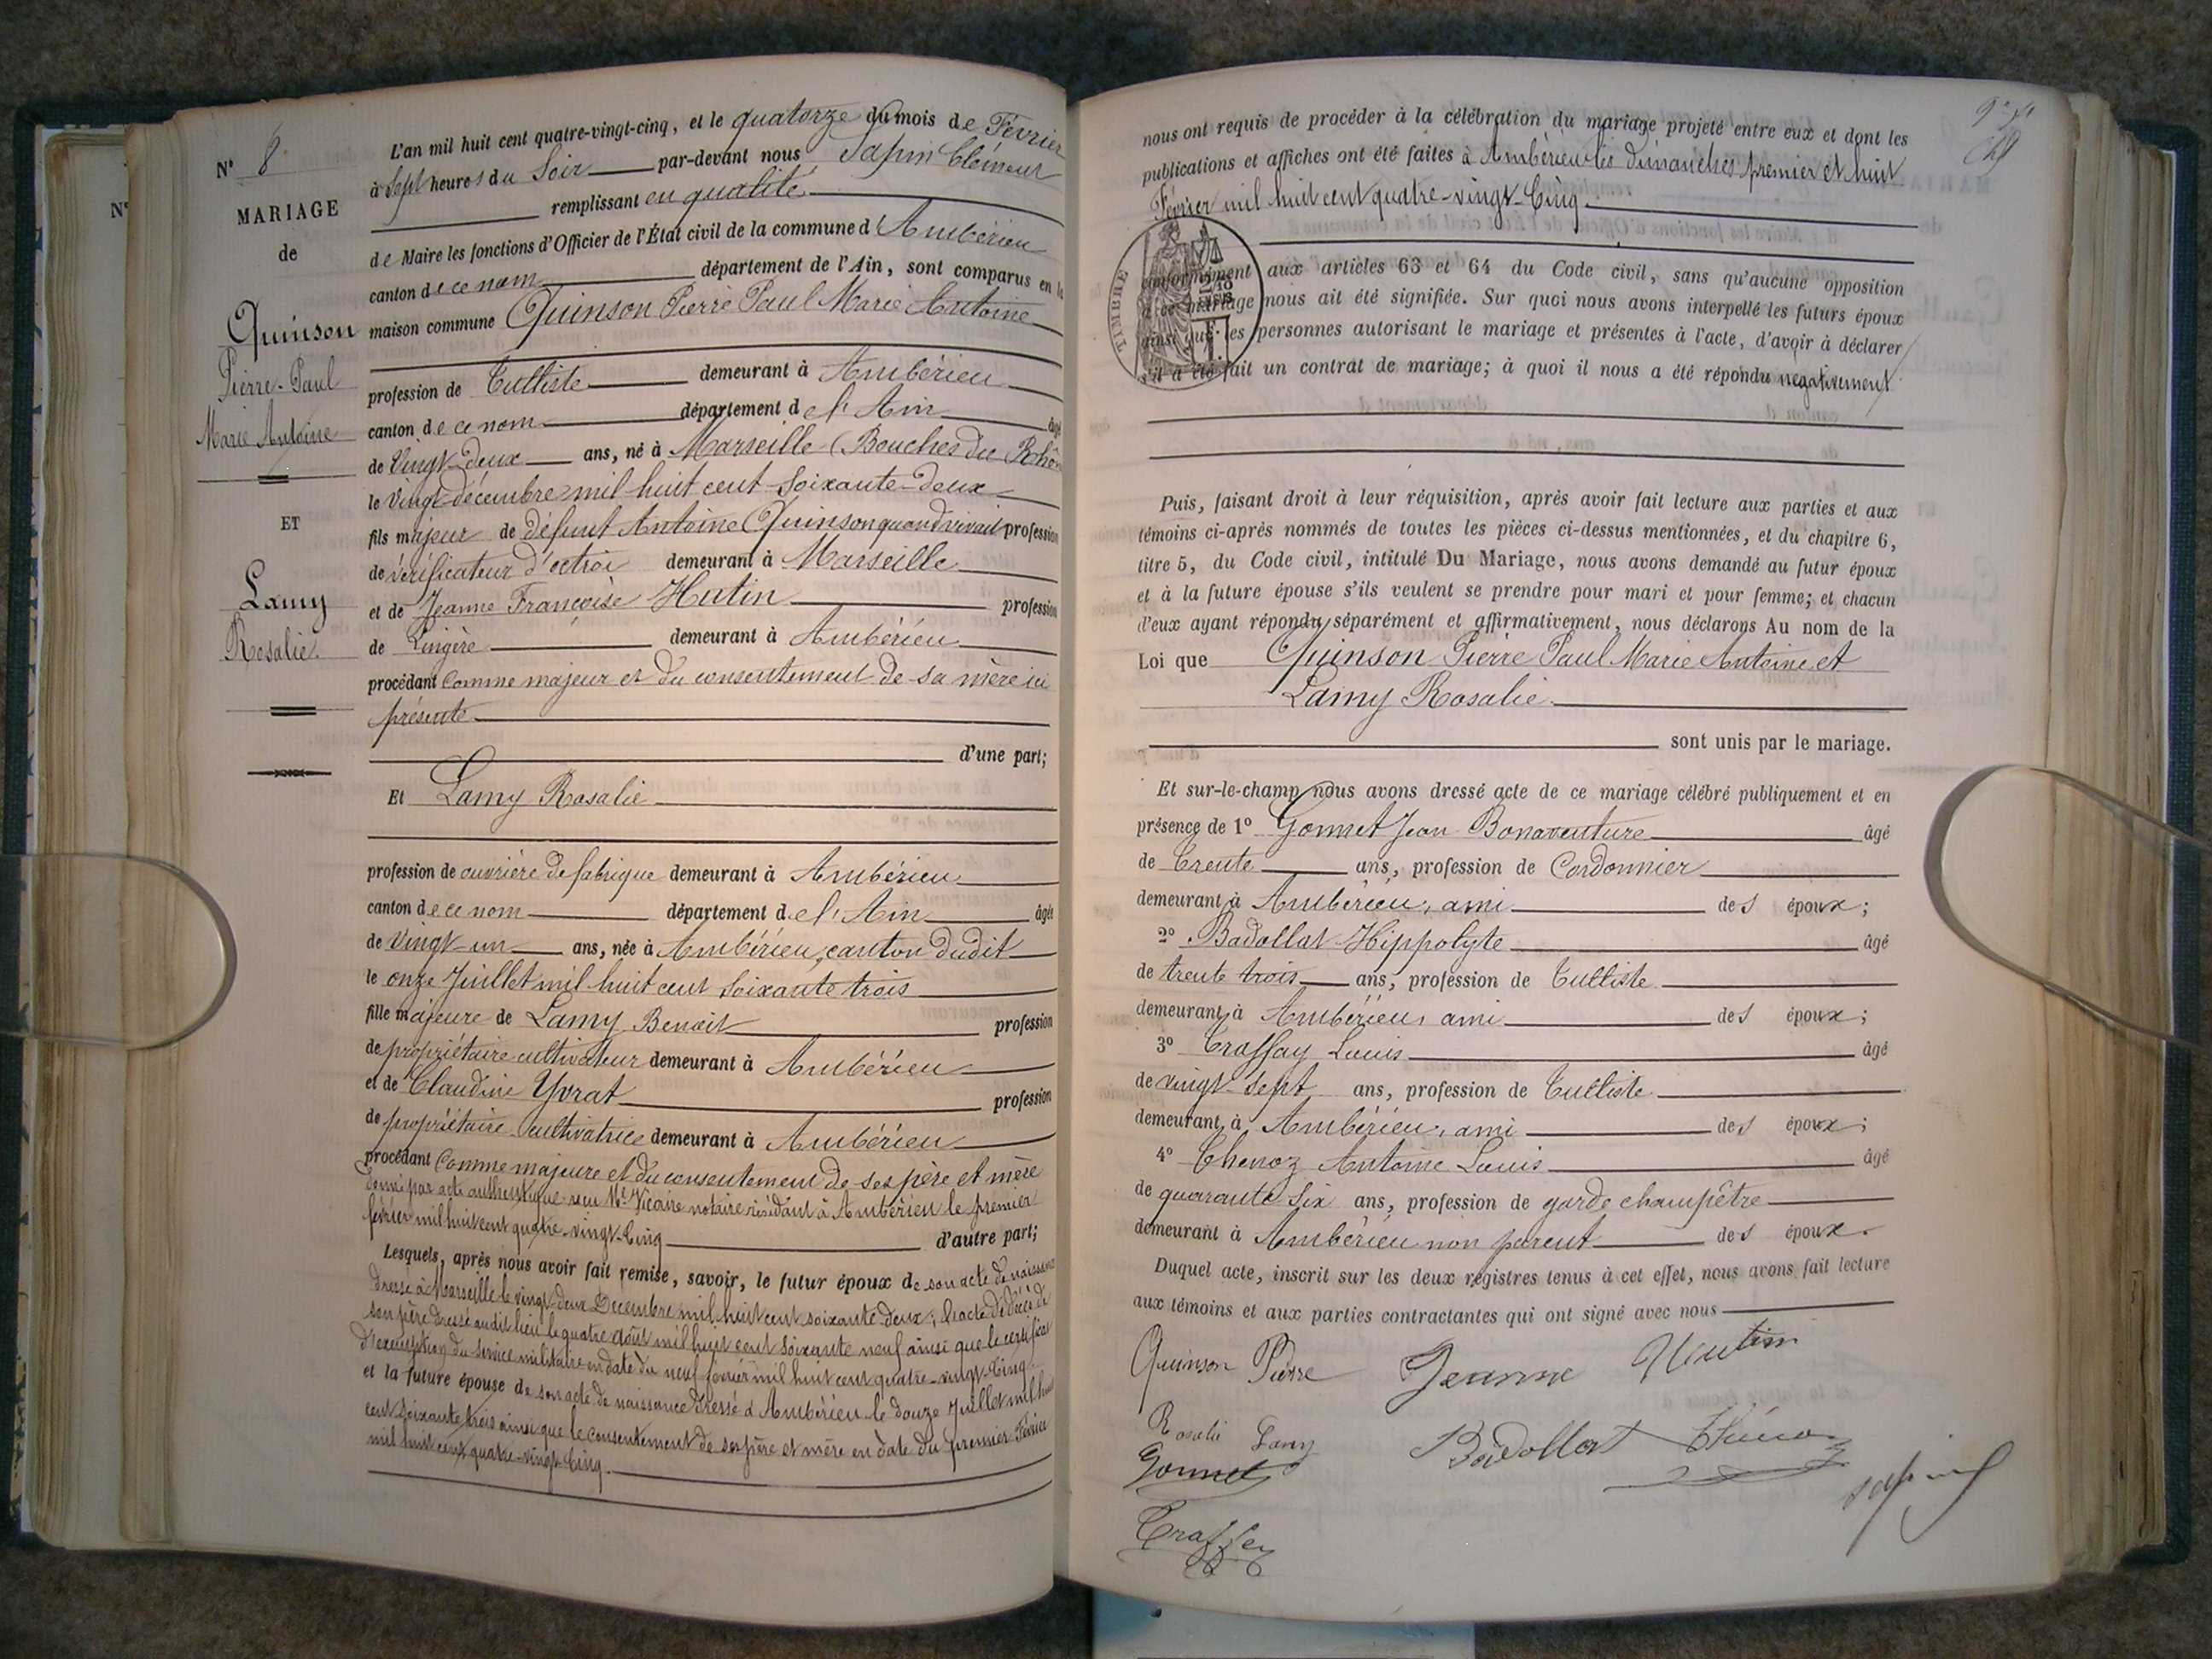 N° 8
MARIAGE
de
Quinson
Pierre-Paul
Marie Antoine
ET
Lamy
Rosalie
L'an mil huit cent quatre-vingt-cinq, et le quatorze du mois de Février
à Sept heures du Soir par-devant nous Sapin Clément
remplissant en qualité
de Maire les fonctions d'Officier de l'État civil de la commune d'Ambérieu
canton de ce nom département de l'Ain, sont comparus en la
maison commune Quinson Pierre Paul Marie Antoine
profession de Tulliste demeurant à Ambérieu
canton de ce nom département de l'Ain âgé
de Vingt-deux ans, né à Marseille (Bouches du Rhône
le vingt décembre mil huit cent soixante-deux
fils majeur de défunt Antoine Quinson quand vivait profession
de vérificateur d'octroi demeurant à Marseille
et de Jeanne Françoise Hutin profession
de Lingère demeurant à Ambérieu
procédant comme majeur et du consentement de sa mère ici
présente
d'une part;
Et Lamy Rosalie
profession de ouvrière de fabrique demeurant à Ambérieu
canton de ce nom département de l'Ain âgée
de vingt-un ans, née à Ambérieu, canton dudit
le onze Juillet mil huit cent soixante trois
fille majeure de Lamy Benoit profession
de propriétaire cultivateur demeurant à Ambérieu
et de Claudine Yvrat profession
de propriétaire cultivatrice demeurant à Ambérieu
procédant comme majeure et du consentement de ses père et mère
donné par acte authentique reçu Me Vicaire notaire résidant à Ambérieu le premier
février mil huit cent quatre-vingt-cinq d'autre part;
Lesquels, après nous avoir fait remise, savoir, le futur époux de son acte de naissance
dressé à Marseille le vingt-deux Décembre mil huit cent soixante-deux; l'acte de décès de
son père dressé audit lieu le quatre août mil huit cent soixante neuf ainsi que le certificat
d'exemption du service militaire en date du neuf février mil huit cent quatre-vingt-cinq
et la future épouse de son acte de naissance dressé à Ambérieu le douze Juillet mil huit
cent soixante trois ainsi que le consentement de ses père et mère en date du premier Février
mil huit cent quatre-vingt-cinq.
nous ont requis de procéder à la célébration du mariage projeté entre eux et dont les
publications et affiches ont été faites à Ambérieu les dimanches premier et huit
Février mil huit cent quatre-vingt-cinq.
TIMBRE
conformément aux articles 63 et 64 du Code civil, sans qu'aucune opposition
à ce mariage nous ait été signifiée. Sur quoi nous avons interpellé les futurs époux
ainsi que les personnes autorisant le mariage et présentes à l'acte, d'avoir à déclarer
s'il a été fait un contrat de mariage; à quoi il nous a été répondu négativement
Puis, faisant droit à leur réquisition, après avoir fait lecture aux parties et aux
témoins ci-après nommés de toutes les pièces ci-dessus mentionnées, et du chapitre 6,
titre 5, du Code civil, intitulé Du Mariage, nous avons demandé au futur époux
et à la future épouse s'ils veulent se prendre pour mari et pour femme; et chacun
d'eux ayant répondu séparément et affirmativement, nous déclarons Au nom de la
Loi que Quinson Pierre Paul Marie Antoine et
Lamy Rosalie
sont unis par le mariage.
Et sur-le-champ nous avons dressé acte de ce mariage célébré publiquement et en
présence de 1° Gonnet Jean Bonaventure âgé
de trente ans, profession de Cordonnier
demeurant à Ambérieu, ami des époux;
2° Badollat Hippolyte âgé
de trente trois ans, profession de Tulliste
demeurant à Ambérieu, ami des époux;
3° Traffay Louis âgé
de vingt-sept ans, profession de Tulliste
demeurant à Ambérieu, ami des époux;
4° Chenoz Antoine Louis âgé
de quarante six ans, profession de garde champêtre
demeurant à Ambérieu non parent des époux.
Duquel acte, inscrit sur les deux registres tenus à cet effet, nous avons fait lecture
aux témoins et aux parties contractantes qui ont signé avec nous
Quinson Pierre Jeanne Hutin
Rosalie Lamy
Badollat
Gonnet
Sapin